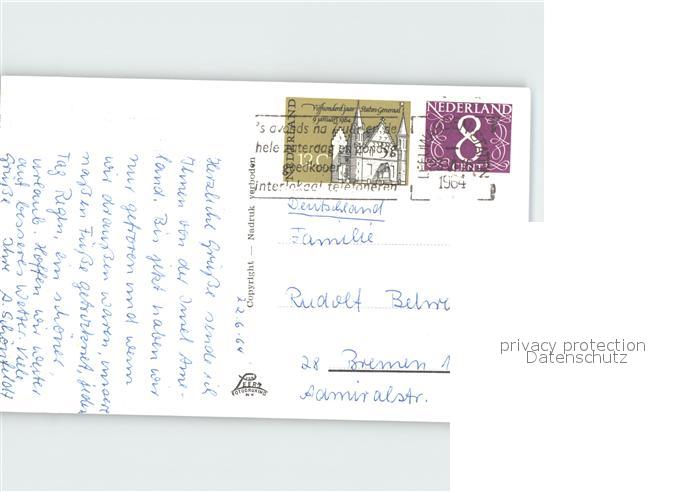 Herzliche Grüße sendet
Ihnen von der Insel Ame-
land. Bis jetzt haben wir
nur gefroren und wenn
wir draußen waren, unsere
naßen Füße getrocknet, jeden
Tag Regen, ein schöner
Urlaub. Hoffen wir weiter
auf besseres Wetter. Viele
Grüße Ihre
22.6.64
Copyright — Nadruk verboden
VAN LEER
FOTODRUKING N.V.
NEDERLAND
Vijfhonderd jaar Staten Generaal
9 januari 1964
12 C
NEDERLAND
8
CENT
's avonds na
hele zaterdag en zondag
goedkoper
interlokaal telefoneren
1964
Deutschland
Familie
Rudolf
28 Bremen 1
Admiralstr.
privacy protection
Datenschutz